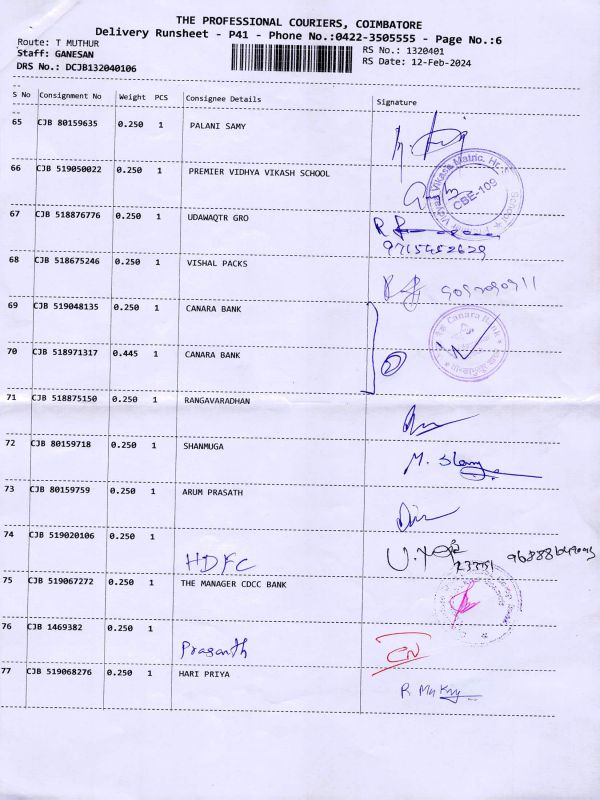 THE PROFESSIONAL COURIERS, COIMBATORE
Delivery Runsheet - P41 - Phone No.:0422-3505555 - Page No.:6
Route: T MUTHUR
Staff: GANESAN
DRS No.: DCJB132040106
RS No.: 1320401
RS Date: 12-Feb-2024
S No Consignment No Weight PCS Consignee Details Signature
65 CJB 80159635 0.250 1 PALANI SAMY
66 CJB 519050022 0.250 1 PREMIER VIDHYA VIKASH SCHOOL
Vikasa Matric. Hr. CBE-109
67 CJB 518876776 0.250 1 UDAWAQTR GRO
9715452629
68 CJB 518675246 0.250 1 VISHAL PACKS
69 CJB 519048135 0.250 1 CANARA BANK
Canara Bank
70 CJB 518971317 0.445 1 CANARA BANK
71 CJB 518875150 0.250 1 RANGAVARADHAN
72 CJB 80159718 0.250 1 SHANMUGA
73 CJB 80159759 0.250 1 ARUM PRASATH
74 CJB 519020106 0.250 1 HDFC
75 CJB 519067272 0.250 1 THE MANAGER CDCC BANK
76 CJB 1469382 0.250 1 Prasanth
77 CJB 519068276 0.250 1 HARI PRIYA